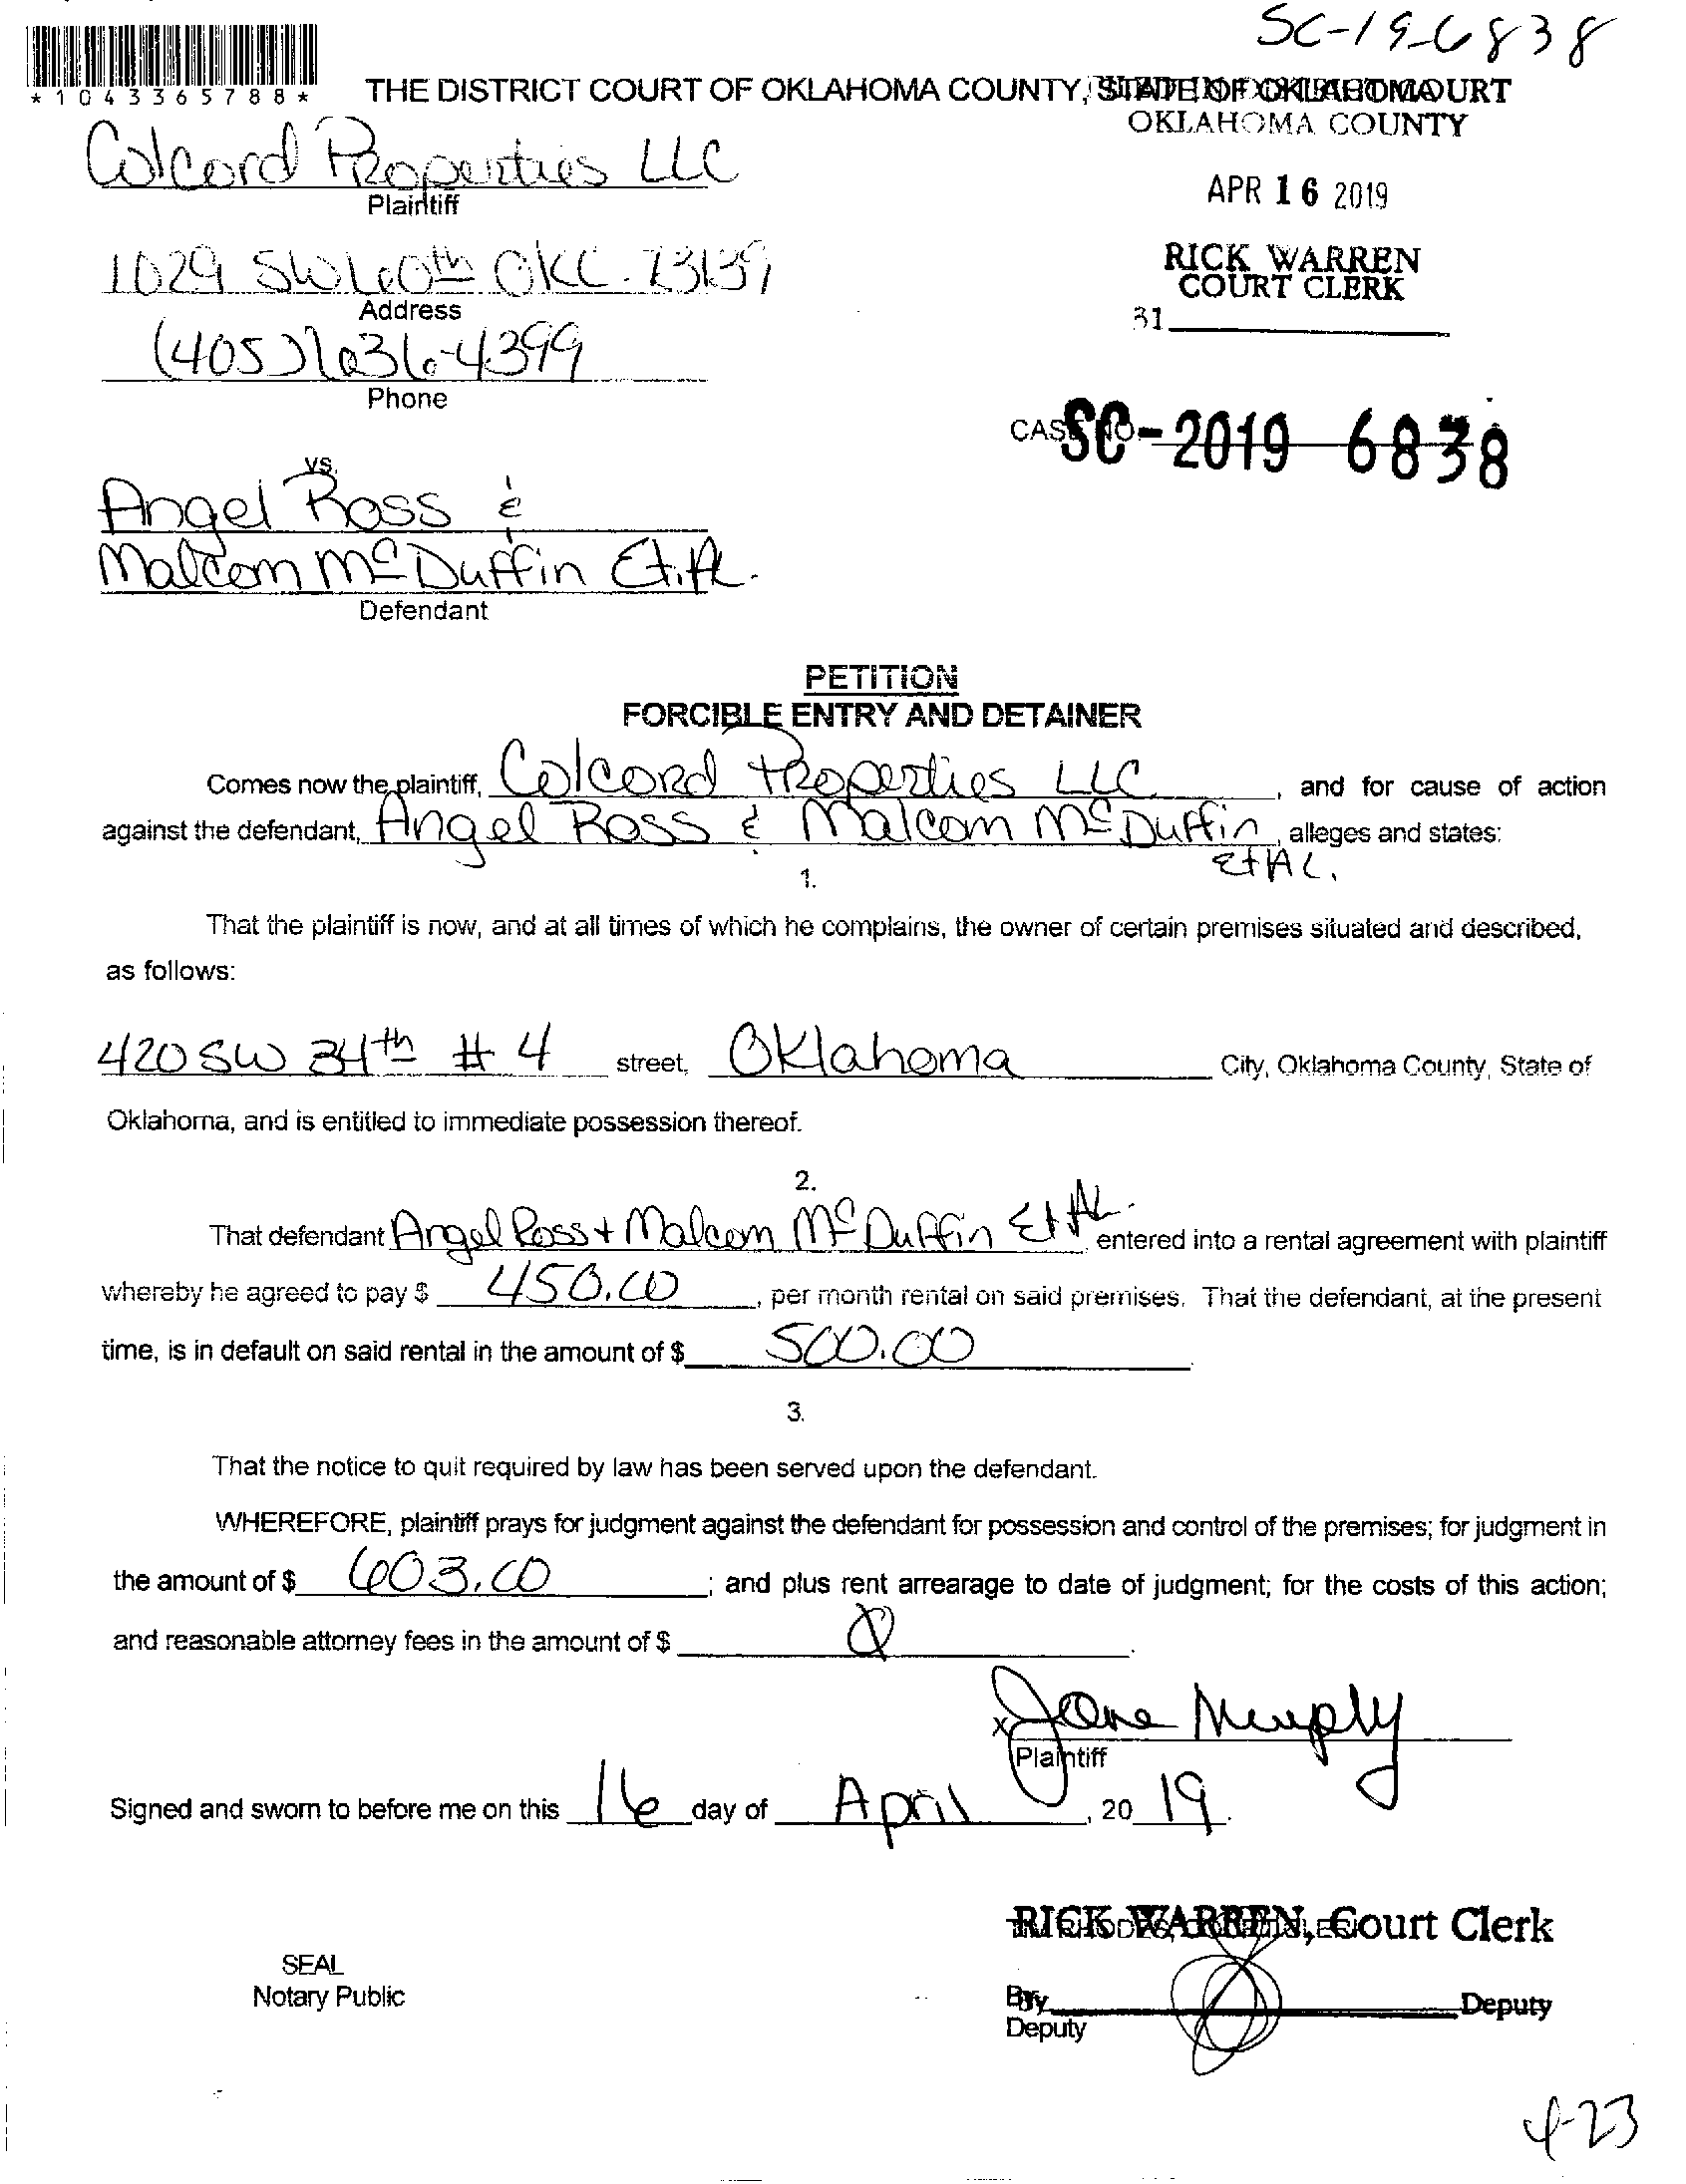 SC-19-6838
*1043365788*
THE DISTRICT COURT OF OKLAHOMA COUNTY, STATE OF OKLAHOMA
FILED IN DISTRICT COURT
OKLAHOMA COUNTY
Colcord Properties LLC
Plaintiff
APR 16 2019
1029 SW 60th OKC. 73139
Address
RICK WARREN
COURT CLERK
31
(405) 636-4399
Phone
CASE NO. SC-2019 6838
vs.
Angel Ross &
Malcom McDuffin Et.Al.
Defendant
PETITION
FORCIBLE ENTRY AND DETAINER
Comes now the plaintiff, Colcord Properties LLC, and for cause of action
against the defendant, Angel Ross & Malcom McDuffin, alleges and states:
Et AL.
1.
That the plaintiff is now, and at all times of which he complains, the owner of certain premises situated and described,
as follows:
420 SW 34th # 4 street, Oklahoma City, Oklahoma County, State of
Oklahoma, and is entitled to immediate possession thereof.
2.
That defendant Angel Ross + Malcom McDuffin Et AL. entered into a rental agreement with plaintiff
whereby he agreed to pay $ 450.00, per month rental on said premises. That the defendant, at the present
time, is in default on said rental in the amount of $ 500.00
3.
That the notice to quit required by law has been served upon the defendant.
WHEREFORE, plaintiff prays for judgment against the defendant for possession and control of the premises; for judgment in
the amount of $ 603.00; and plus rent arrearage to date of judgment; for the costs of this action;
and reasonable attorney fees in the amount of $ 0.
x Jane Murphy
Plaintiff
Signed and sworn to before me on this 16 day of April, 2019.
RICK WARREN, Court Clerk
SEAL
Notary Public
By Deputy
Deputy
4-23